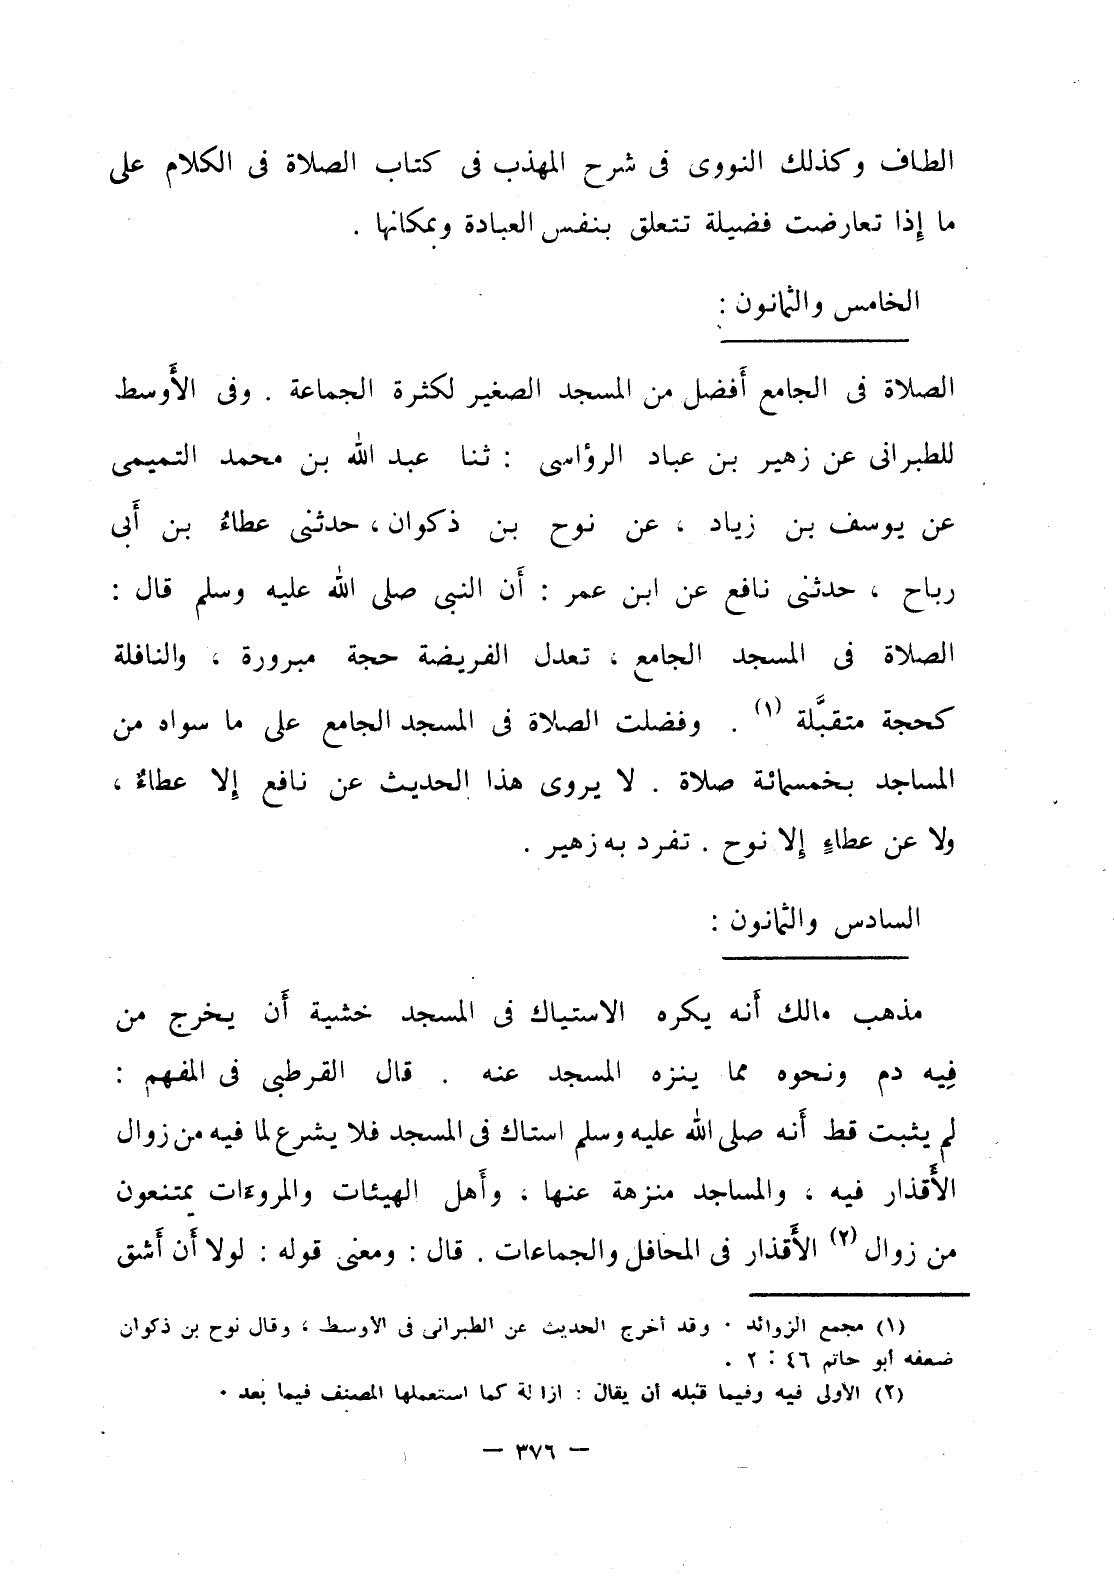 الطاف وكذلك النووى فى شرح المهذب فى كتاب الصلاة فى الكلام على
ما إذا تعارضت فضيلة تتعلق بنفس العبادة وبمكانها .
الخامس والثمانون :
الصلاة فى الجامع أفضل من المسجد الصغير لكثرة الجماعة . وفى الأوسط
للطبرانى عن زهير بن عباد الرؤاسى : ثنا عبد الله بن محمد التميمى
عن يوسف بن زياد ، عن نوح بن ذكوان ، حدثنى عطاءُ بن أبى
رباح ، حدثنى نافع عن ابن عمر : أن النبى صلى الله عليه وسلم قال :
الصلاة فى المسجد الجامع ، تعدل الفريضة حجة مبرورة ، والنافلة
كحجة متقبَّلة (١) . وفضلت الصلاة فى المسجد الجامع على ما سواه من
المساجد بخمسمائة صلاة . لا يروى هذا الحديث عن نافع إلا عطاءٌ ،
ولا عن عطاءٍ إلا نوح . تفرد به زهير .
السادس والثمانون :
مذهب مالك أنه يكره الاستياك فى المسجد خشية أن يخرج من
فِيه دم ونحوه مما ينزه المسجد عنه . قال القرطبى فى المفهم :
لم يثبت قط أنه صلى الله عليه وسلم استاك فى المسجد فلا يشرع لما فيه من زوال
الأقذار فيه ، والمساجد منزهة عنها ، وأهل الهيئات والمروءات يمتنعون
من زوال (٢) الأقذار فى المحافل والجماعات . قال : ومعنى قوله : لولا أن أشق
(١) مجمع الزوائد ٠ وقد أخرج الحديث عن الطبرانى فى الأوسط ، وقال نوح بن ذكوان
ضعفه أبو حاتم ٤٦ : ٢ .
(٢) الأولى فيه وفيما قبله أن يقال : ازالة كما استعملها المصنف فيما بعد ٠
— ٣٧٦ —